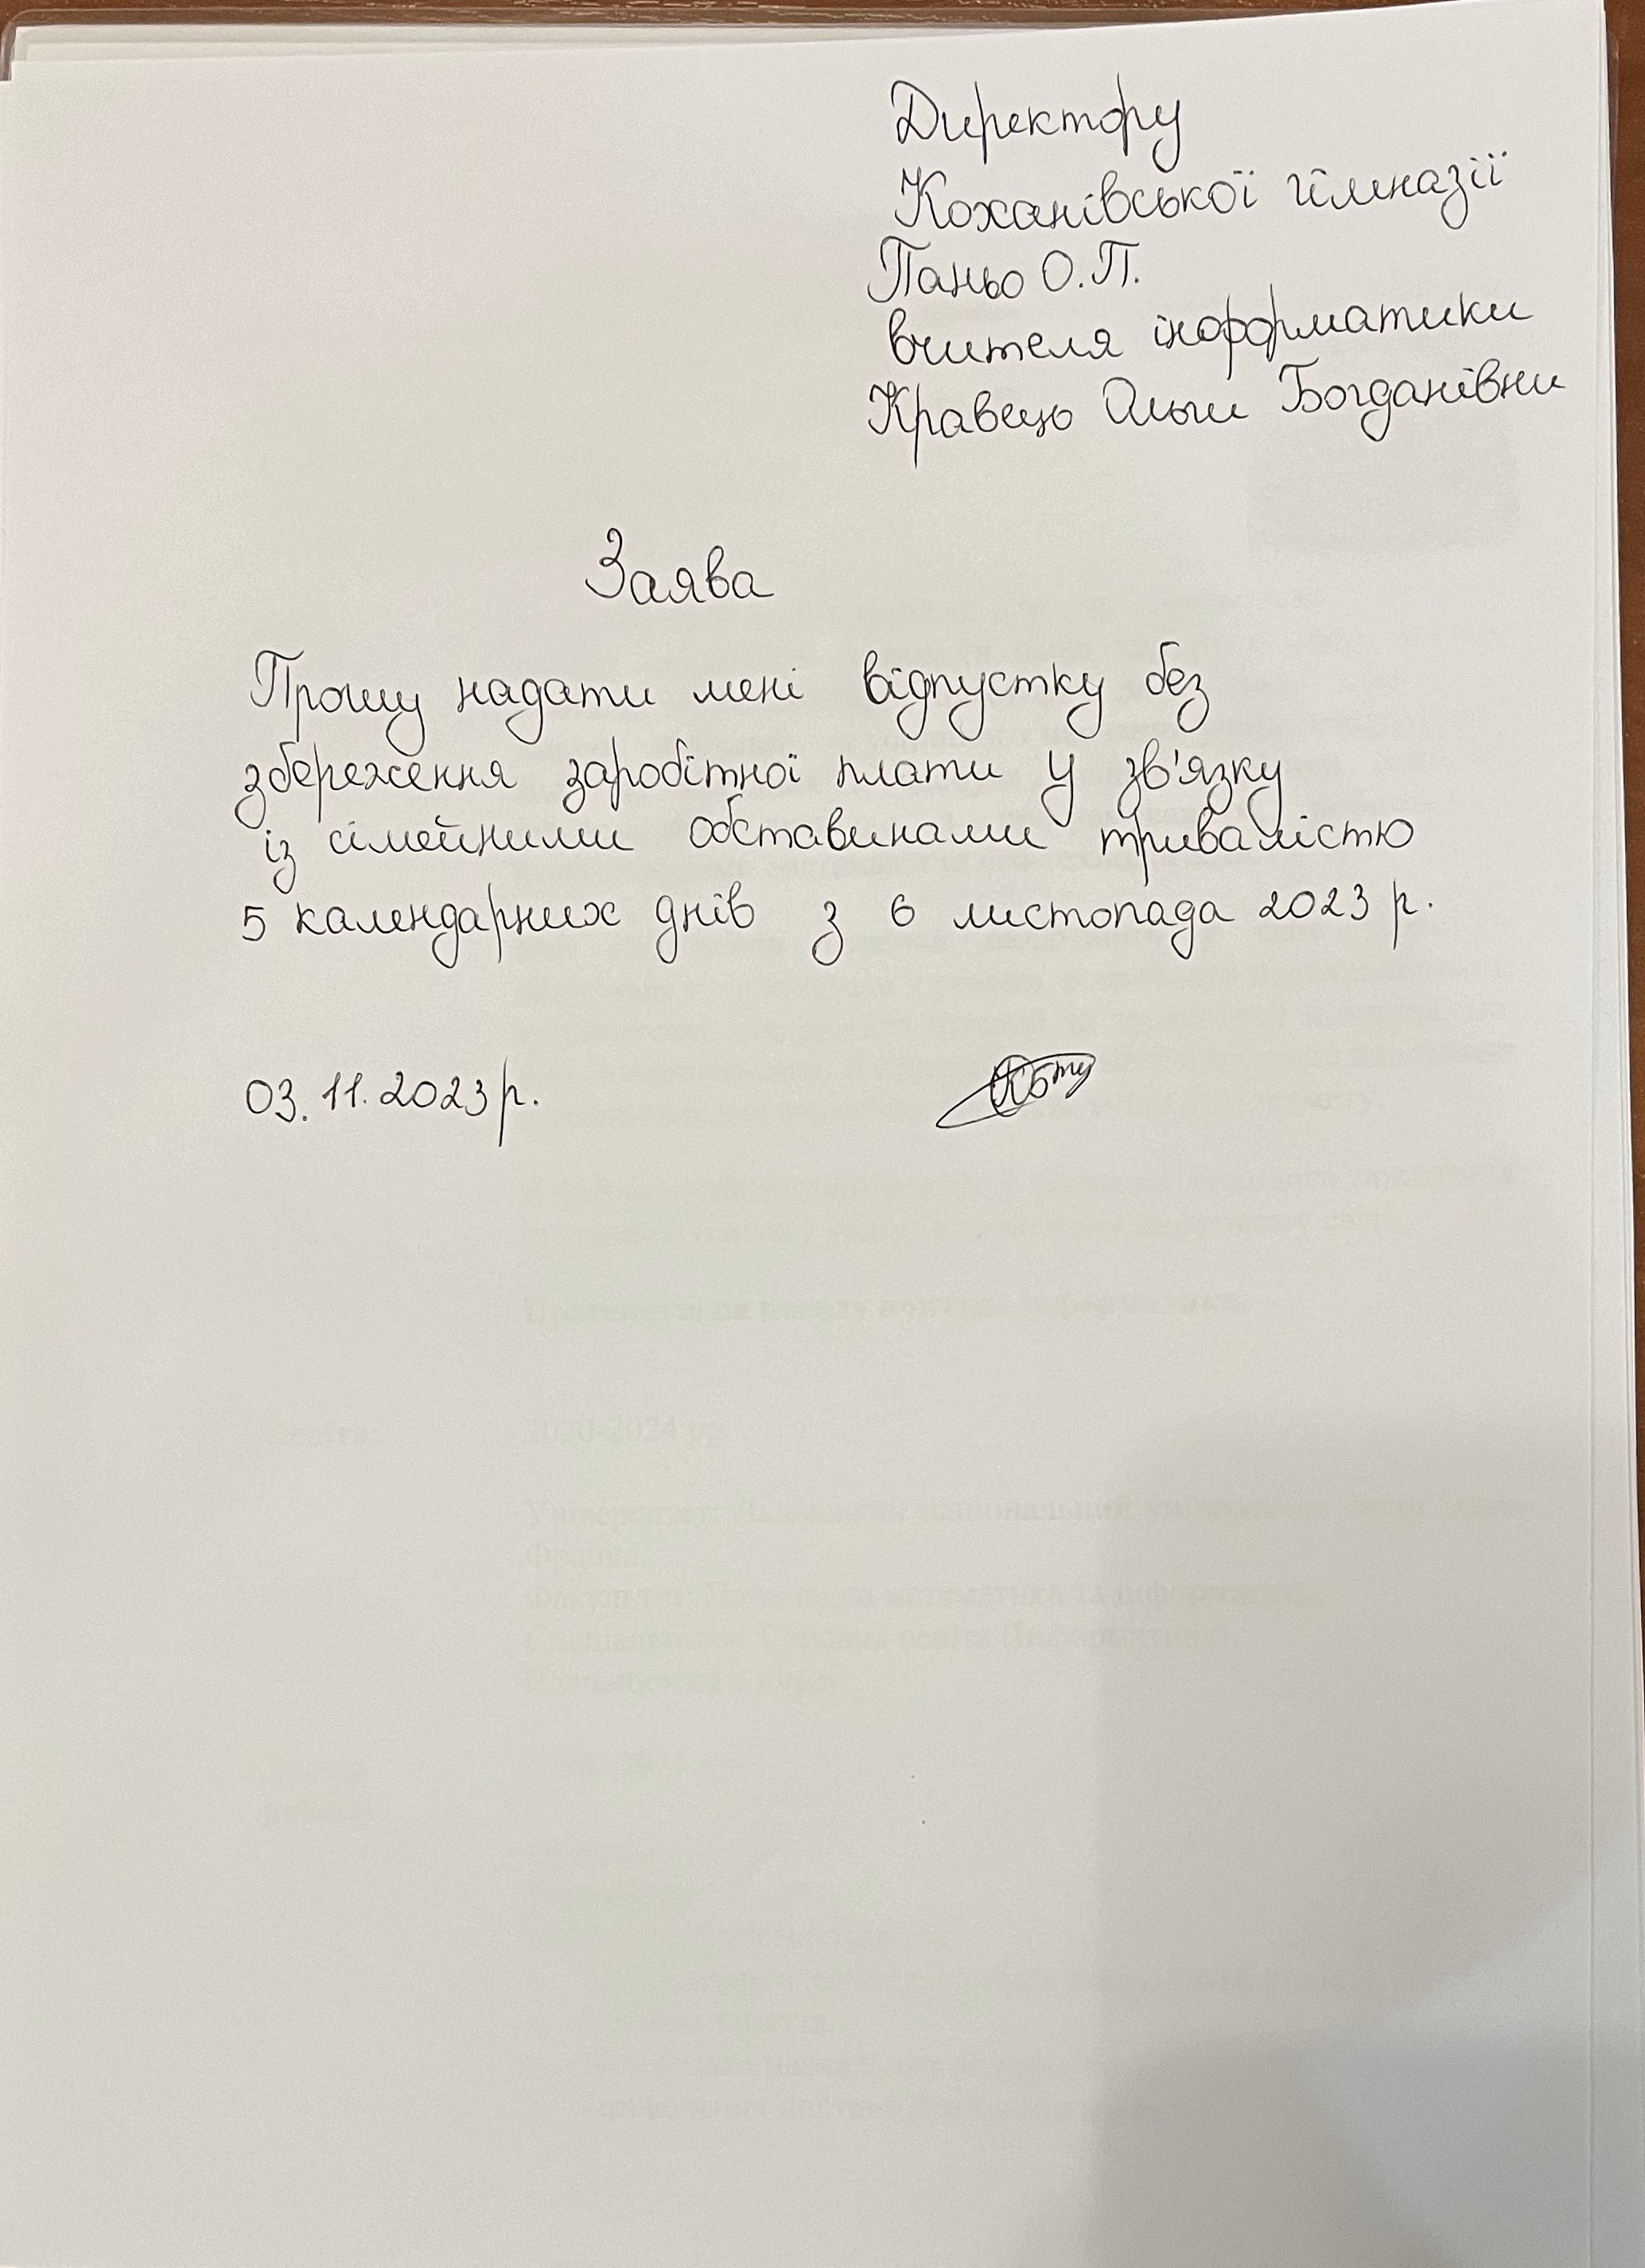 Директору
Коханівської гімназії
Паньо О.П.
вчителя інформатики
Кравець Ольги Богданівни
Заява
Прошу надати мені відпустку без
збереження заробітної плати у зв'язку
із сімейними обставинами тривалістю
5 календарних днів з 6 листопада 2023 р.
03.11.2023 р.
2020-2024 рр